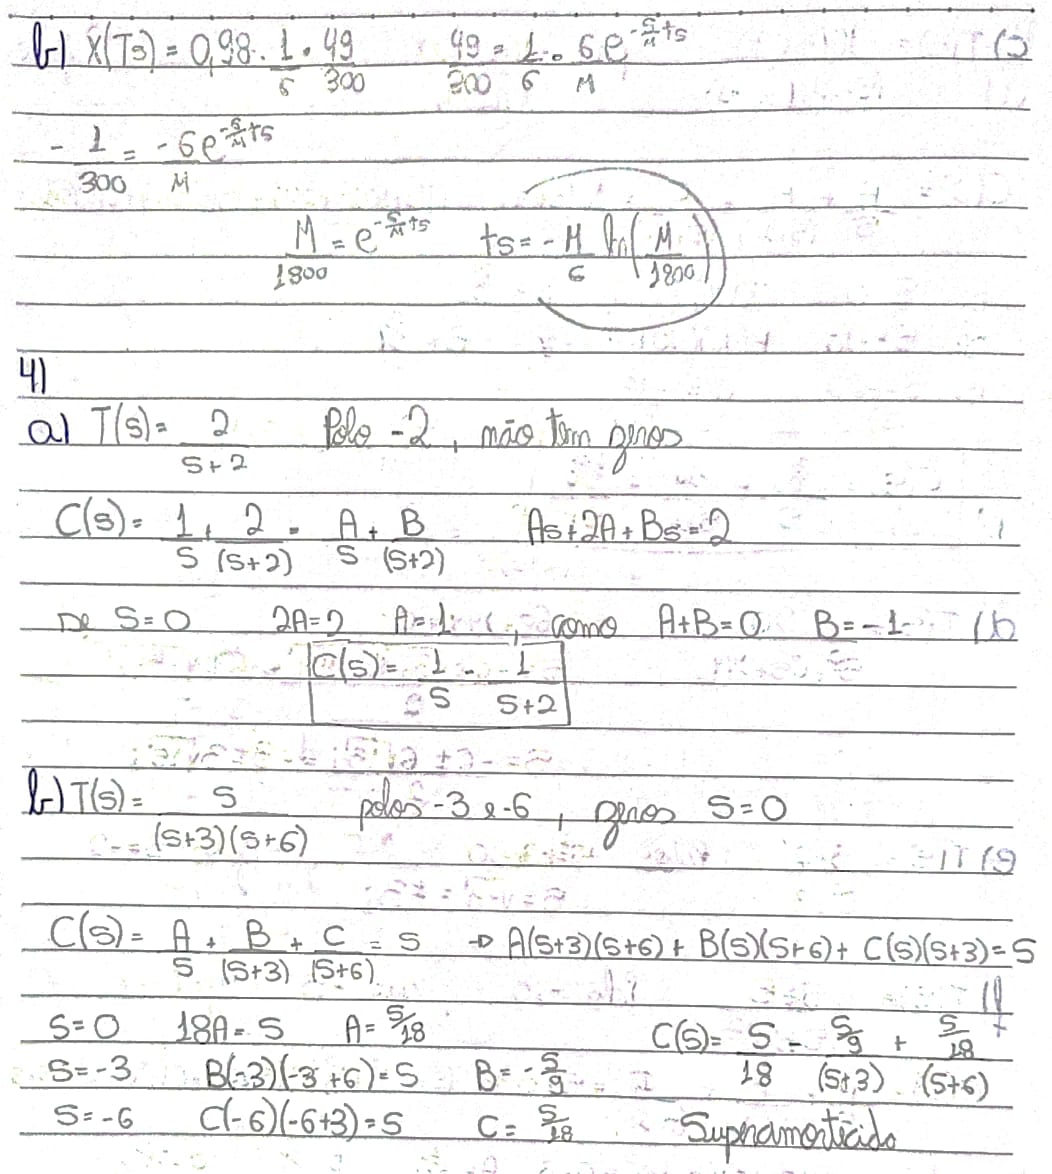 b) X(Ts) = 0,98 · 1/6 · 49/300    49/300 = 1/6 · 6e^(-5/M ts)/M
- 1/300 = -6e^(-5/M ts)/M
M/1800 = e^(-5/M ts)    ts = -M/6 ln(M/1800)
4)
a) T(s) = 2/(s+2)    Polo -2, não tem zeros
C(s) = 1/s · 2/(s+2) = A/s + B/(s+2)    As+2A+Bs=2
De S=0    2A=2    A=1, como    A+B=0    B=-1
C(s) = 1/s - 1/(s+2)
b) T(s) = 5/((s+3)(s+6))    polos -3 e -6, zeros S=0
C(s) = A/s + B/(s+3) + C/(s+6) = 5    → A(s+3)(s+6) + B(s)(s+6) + C(s)(s+3) = 5
S=0    18A = 5    A = 5/18    C(s) = 5/18 - 5/9/(s+3) + 5/18/(s+6)
S=-3    B(-3)(-3+6) = 5    B = -5/9
S=-6    C(-6)(-6+3) = 5    C = 5/18    Superamortecido